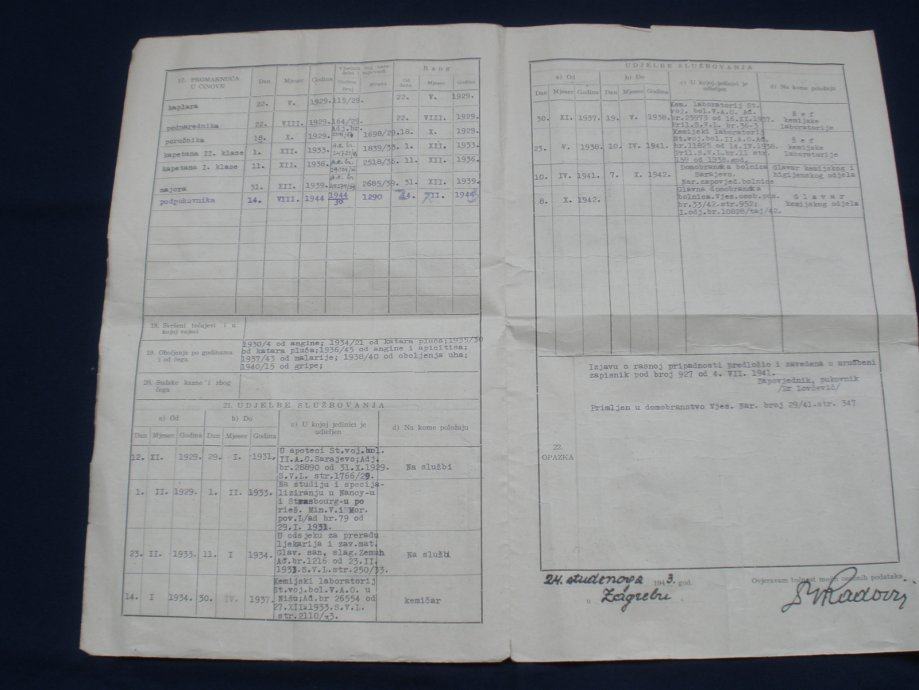 17. PROMAKNUĆA U ČINOVE
Dan Mjesec Godina Rang
Od Dan Mjesec Godina
kaplara 22. V. 1929. 115/29. 22. V. 1929.
podnarednika 22. VIII. 1929. 164/29. 22. VIII. 1929.
poručnika 18. X. 1929. 1698/29. 18. X. 1929.
kapetana II. klase 1. XII. 1933. 1839/33. 1. XII. 1933.
kapetana I. klase 11. XII. 1936. 2518/36. 11. XII. 1936.
majora 31. XII. 1939. 2685/39. 31. XII. 1939.
podpukovnika 14. VIII. 1944 1944 1290
18. Svršeni tečajevi i u kojoj vojsci
19. Oboljenja po godinama i od čega
1930/4 od angine; 1934/21 od katara pluća; 1935/30
od katara pluća; 1936/45 od angine i apicitisa;
1937/43 od malarije; 1938/40 od oboljenja uha;
1940/15 od gripe;
20. Sudske kazne i zbog čega
21. UDJELBE SLUŽBOVANJA
a) Od b) Do c) U kojoj jedinici je udieljen d) Na kome položaju
Dan Mjesec Godina Dan Mjesec Godina
12. XI. 1929. 29. I. 1931.
U apoteci St.voj.bol.
II.A.O.Sarajevo;Adj.
br.28890 od 31.X.1929.
S.V.L. str.1766/29.
Na službi
1. II. 1929. 1. II. 1933.
Na studiju i specija-
liziranju u Nancy-u
i Strasbourg-u po
rieš. Min.V.i Mor.
pov.L/ad br.79 od
29.I. 1931.
23. II. 1933. 11. I 1934.
U odsjeku za preradu
ljekarija i zav.mat.
Glav. san. slag.Zemun
Ađ.br.1216 od 23.II.
1933.S.V.L. str.250/33.
Na službi
14. I 1934. 30. IV. 1937.
Kemijski laboratorij
St.voj.bol.V.A.O. u
Nišu;Ađ.br 26554 od
27.XII.1933.S.V.L.
str.2110/33.
kemičar
UDJELBE SLUŽBOVANJA
a) Od b) Do c) U kojoj jedinici je udieljen d) Na kome položaju
Dan Mjesec Godina Dan Mjesec Godina
30. XI. 1937. 19. V. 1938.
Kem. laboratorij St.
voj. bol.V.A.O. Ađ.
br.25973 od 16.XI.1937.
Šef
kemijske
laboratorije
23. V. 1938. 10. IV. 1941.
Kemijski laboratorij
St.voj.bol.II.A.O.Ađ.
br.11825 od 14.IV.1938.
159 od 1938.god.
Šef
kemijske
laboratorije
10. IV. 1941. 7. X. 1942.
Domobranska bolnica
Sarajevo.
Nar.zapovjed.bolnice
glavar kemijskog i
higijenskog odjela
8. X. 1942.
Glavna domobranska
bolnica.Vjes.osob.pos.
br.33/42.str.952;
I.odj.br.10828/taj/42.
Glavar
kemijskog odjela
22. OPAZKA
Izjavu o rasnoj pripadnosti predložio i zavedena u urudbeni
zapisnik pod broj 927 od 4. VII. 1941.
Zapovjednik, pukovnik
/Dr Lovčević/
Primljen u domobranstvo Vjes. Nar. broj 29/41.str. 347
24. studenoga 1943. god.
u Zagrebu
Ovjeravam podataka